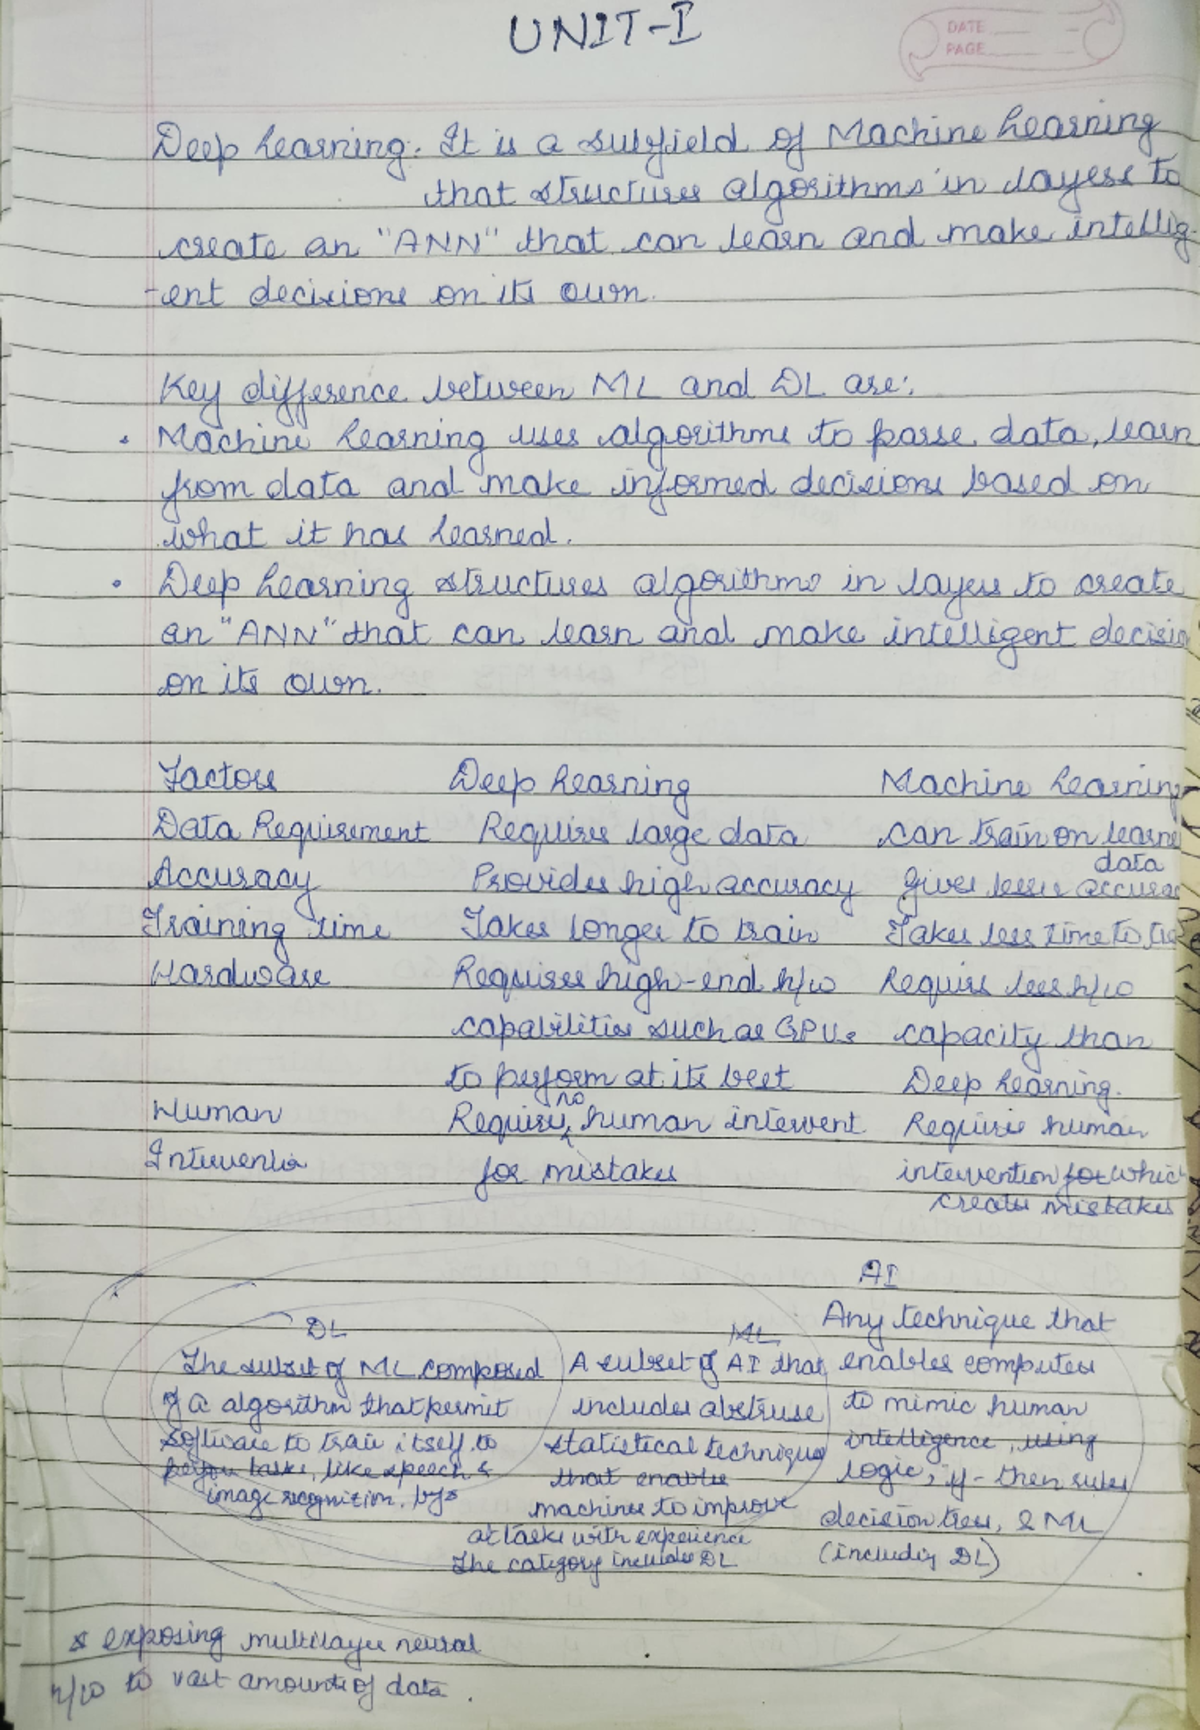 UNIT-I
DATE
PAGE
Deep Learning: It is a subfield of Machine Learning
that structures algorithms in layers to
create an "ANN" that can learn and make intellig-
-ent decisions on its own.
Key difference between ML and DL are:
• Machine Learning uses algorithms to parse data, learn
from data and make informed decisions based on
what it has learned.
• Deep Learning structures algorithms in layers to create
an "ANN" that can learn and make intelligent decisio
on its own.
Factors Deep Learning Machine Learning
Data Requirement Requires large data can train on
data
Accuracy Provides high accuracy gives lesser accurac
Training time Takes longer to train Takes less time to
Hardware Requires high-end h/w Requires less h/w
capabilities such as GPUs capacity than
to perform at its best Deep Learning.
Human Requires no human intervent Requires human
for mistakes intervention for which
creates mistakes
AI
DL ML Any technique that
The subset of ML composed A subset of AI that enables computers
of a algorithm that permit includes abstruse to mimic human
software to train itself to statistical technique intelligence, using
perform tasks, like speech & that enables logic, if-then rules
image recognition, by* machines to improve decision trees, & ML
at tasks with experience (including DL)
The category includes DL
* exposing multilayer neural
n/w to vast amounts of data.